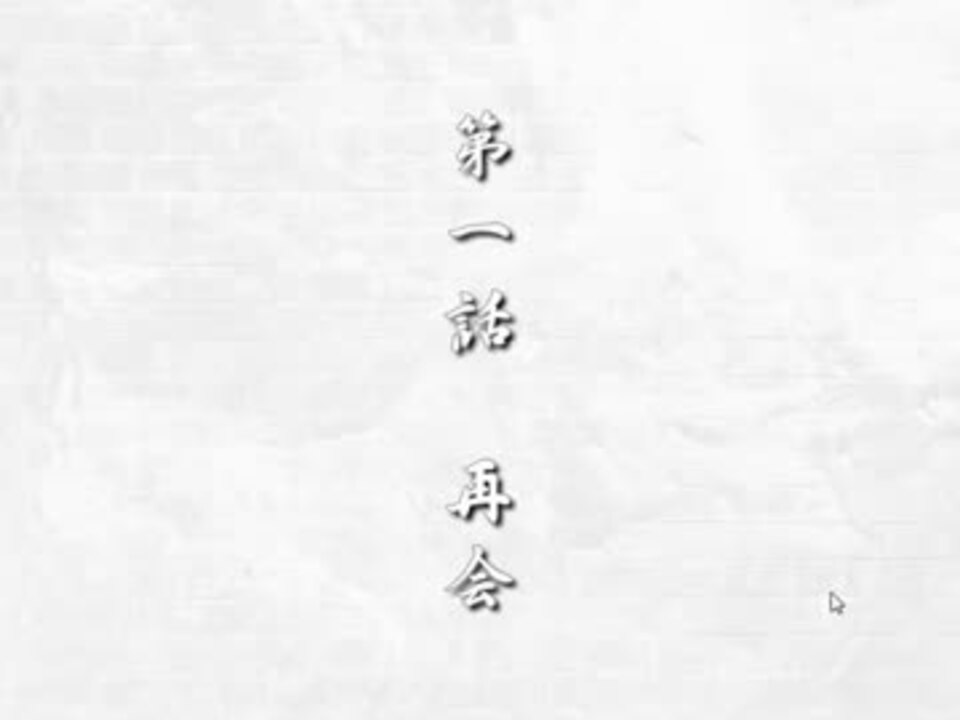 第一話 再会